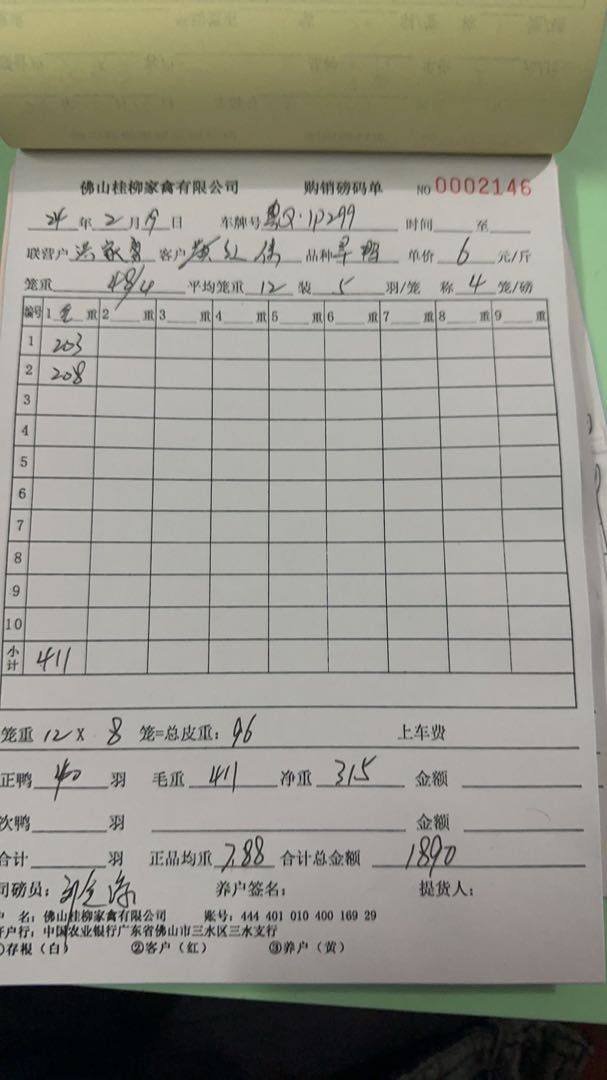 佛山桂柳家禽有限公司 购销磅码单 NO 0002146
24年2月19日 车牌号粤Q·1P299 时间 至
联营户 客户 红 品种 鸭 单价 6 元/斤
笼重 48/4 平均笼重 12 装 5 羽/笼 称 4 笼/磅
编号 1 毛 重 2 重 3 重 4 重 5 重 6 重 7 重 8 重 9 重
1 203
2 208
3
4
5
6
7
8
9
10
小计 411
笼重 12 X 8 笼=总皮重: 96 上车费
正鸭 40 羽 毛重 411 净重 315 金额
次鸭 羽 金额
合计 羽 正品均重 7.88 合计总金额 1890
司磅员: 养户签名: 提货人:
户 名: 佛山桂柳家禽有限公司 账号: 444 401 010 400 169 29
开户行: 中国农业银行广东省佛山市三水区三水支行
①存根(白) ②客户(红) ③养户(黄)